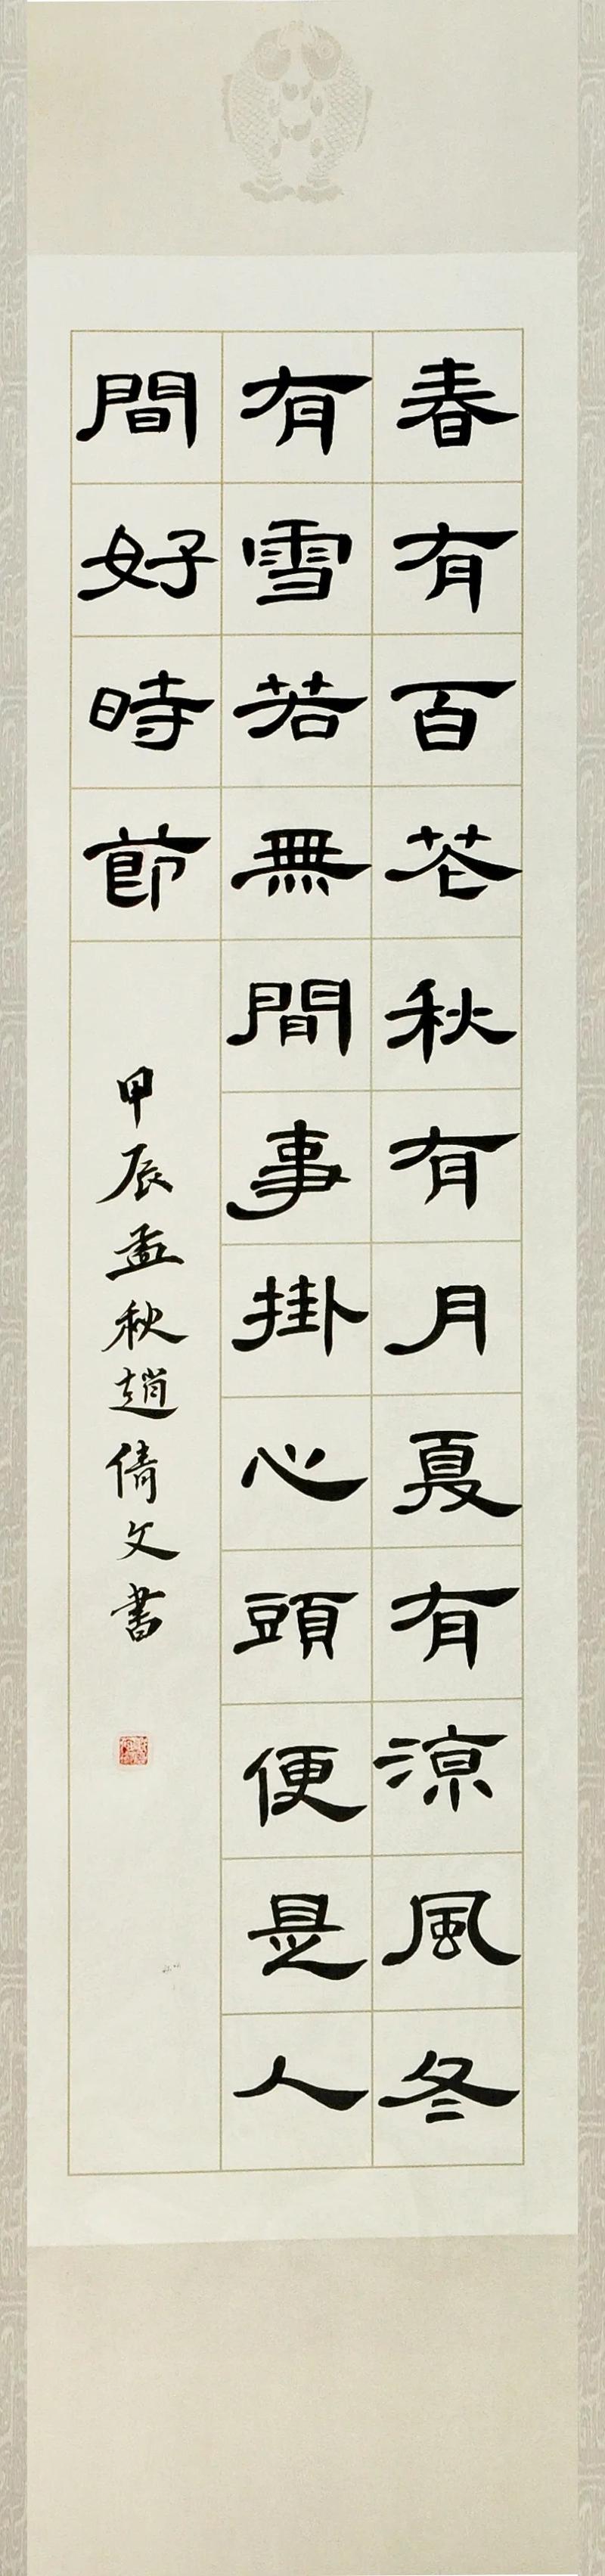 春有百花秋有月夏有涼風冬
有雪若無間事掛心頭便是人
間好時節
甲辰孟秋趙倩文書